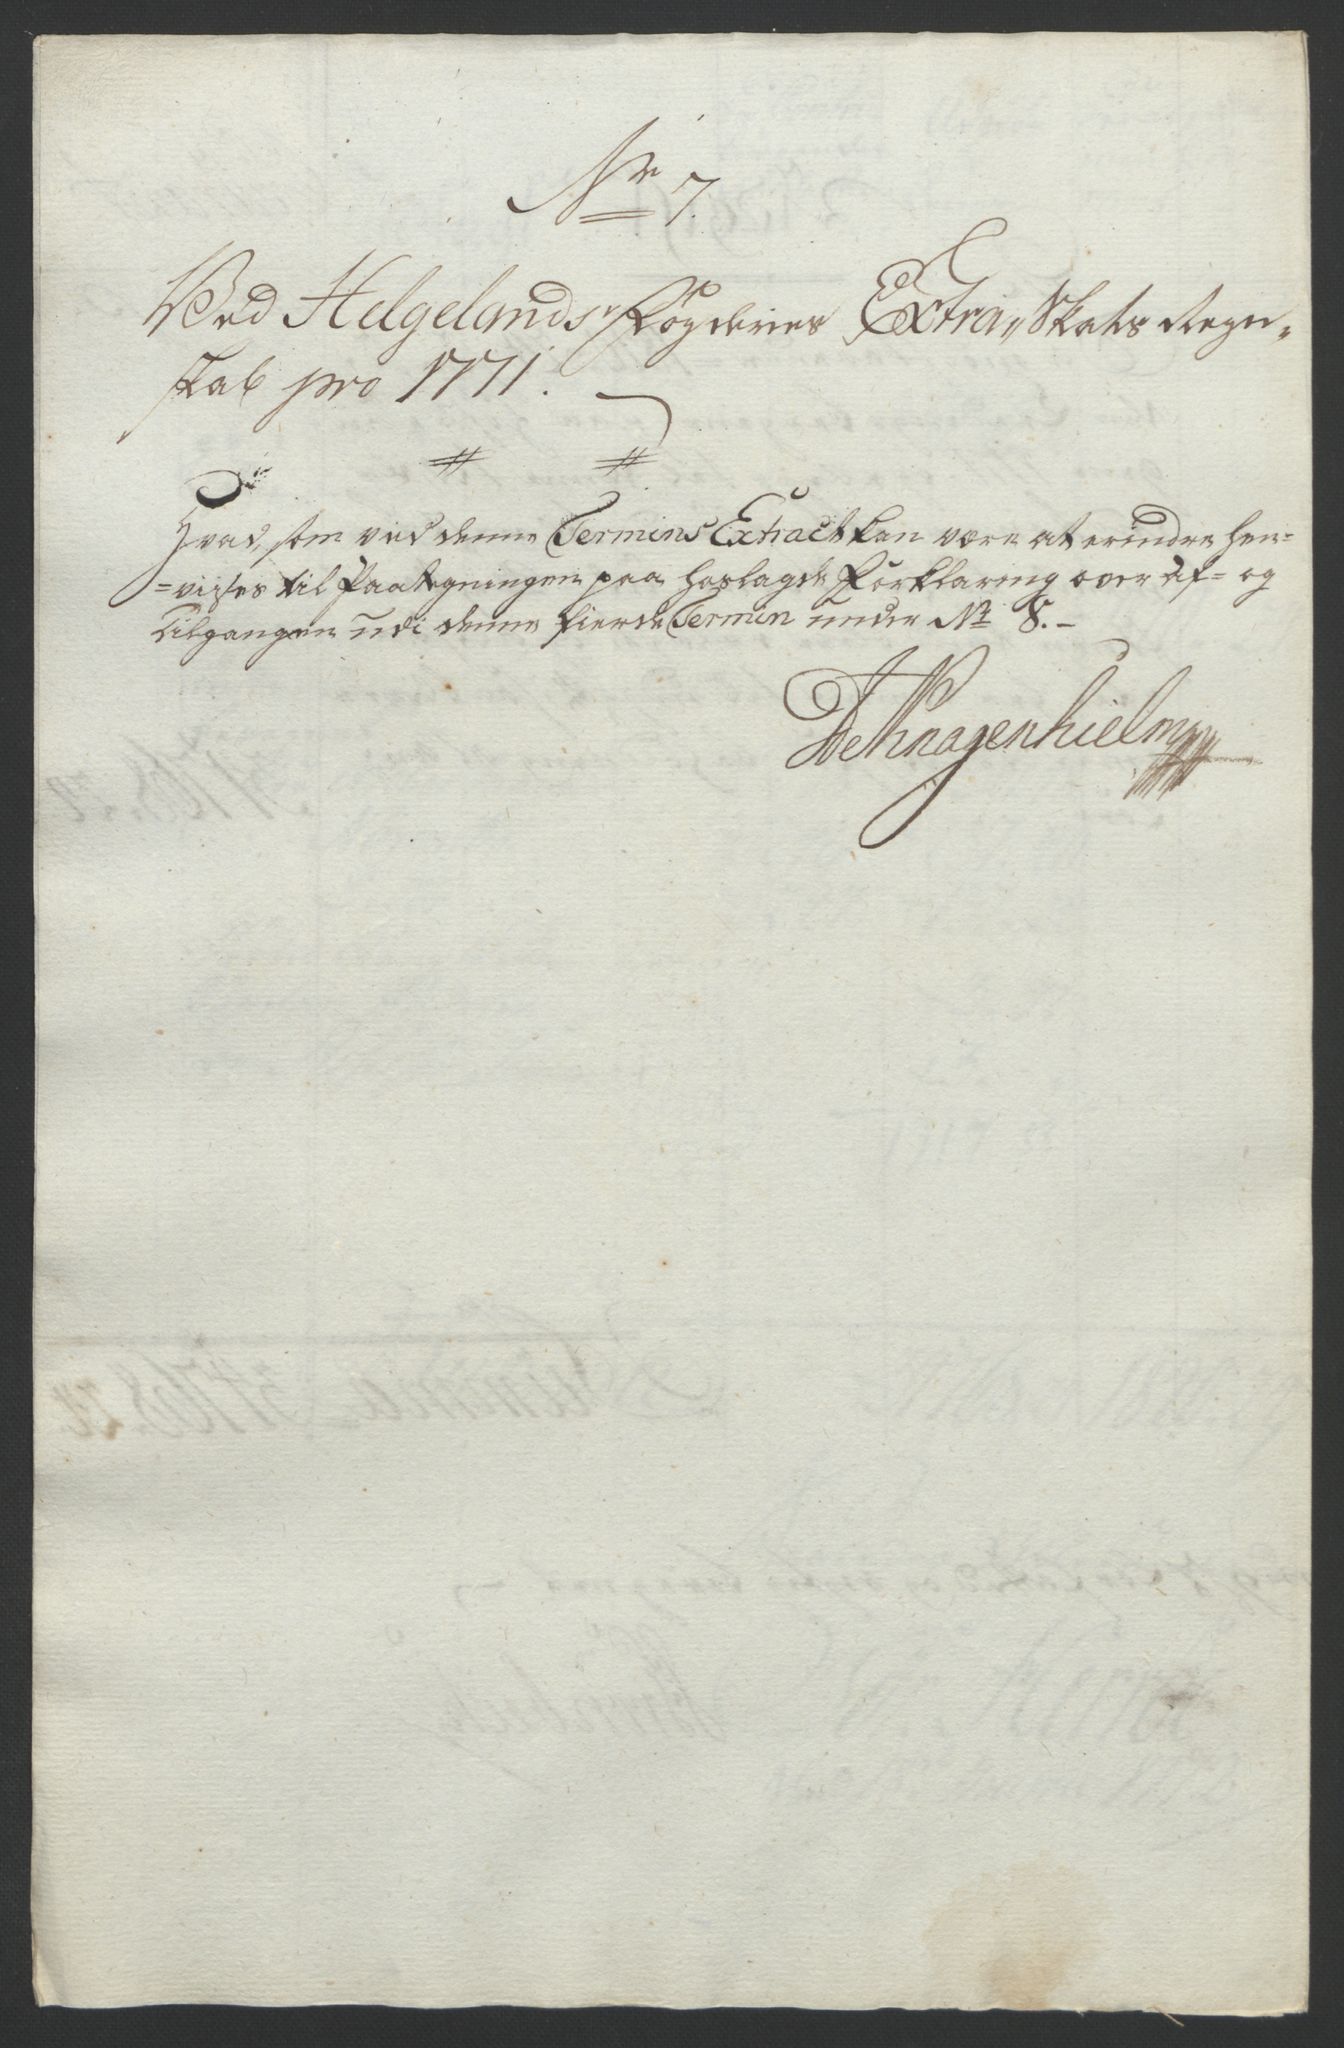 No 7.
Ved Helgelands Fögderies Extra Skats Regn-
skab pro 1771.
Hvad, som ved denne Termins Extract kan være at erindre hen-
=vises til Paategningen paa hoslagde Forklaring over Af= og
Tilgangen udi denne fierde Termin under No 8.
De Knagenhielm